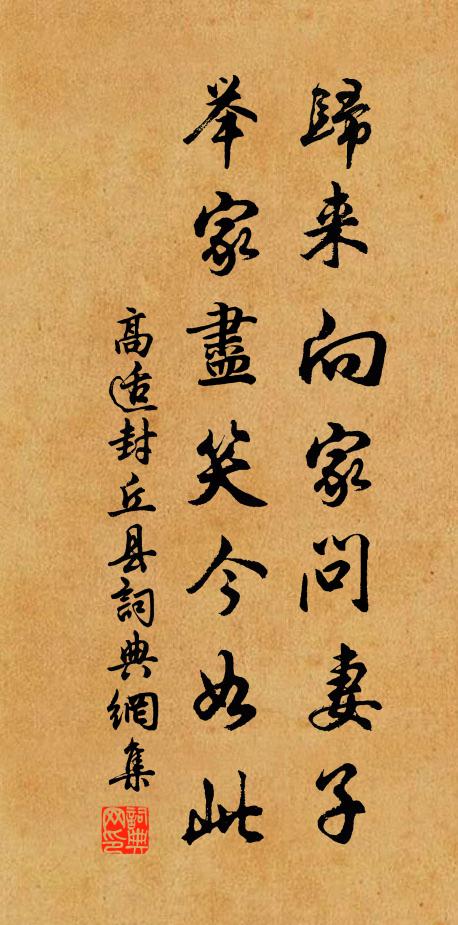 歸来向家問妻子
举家盡笑今如此
高適封丘县詞典網集
詞典网印